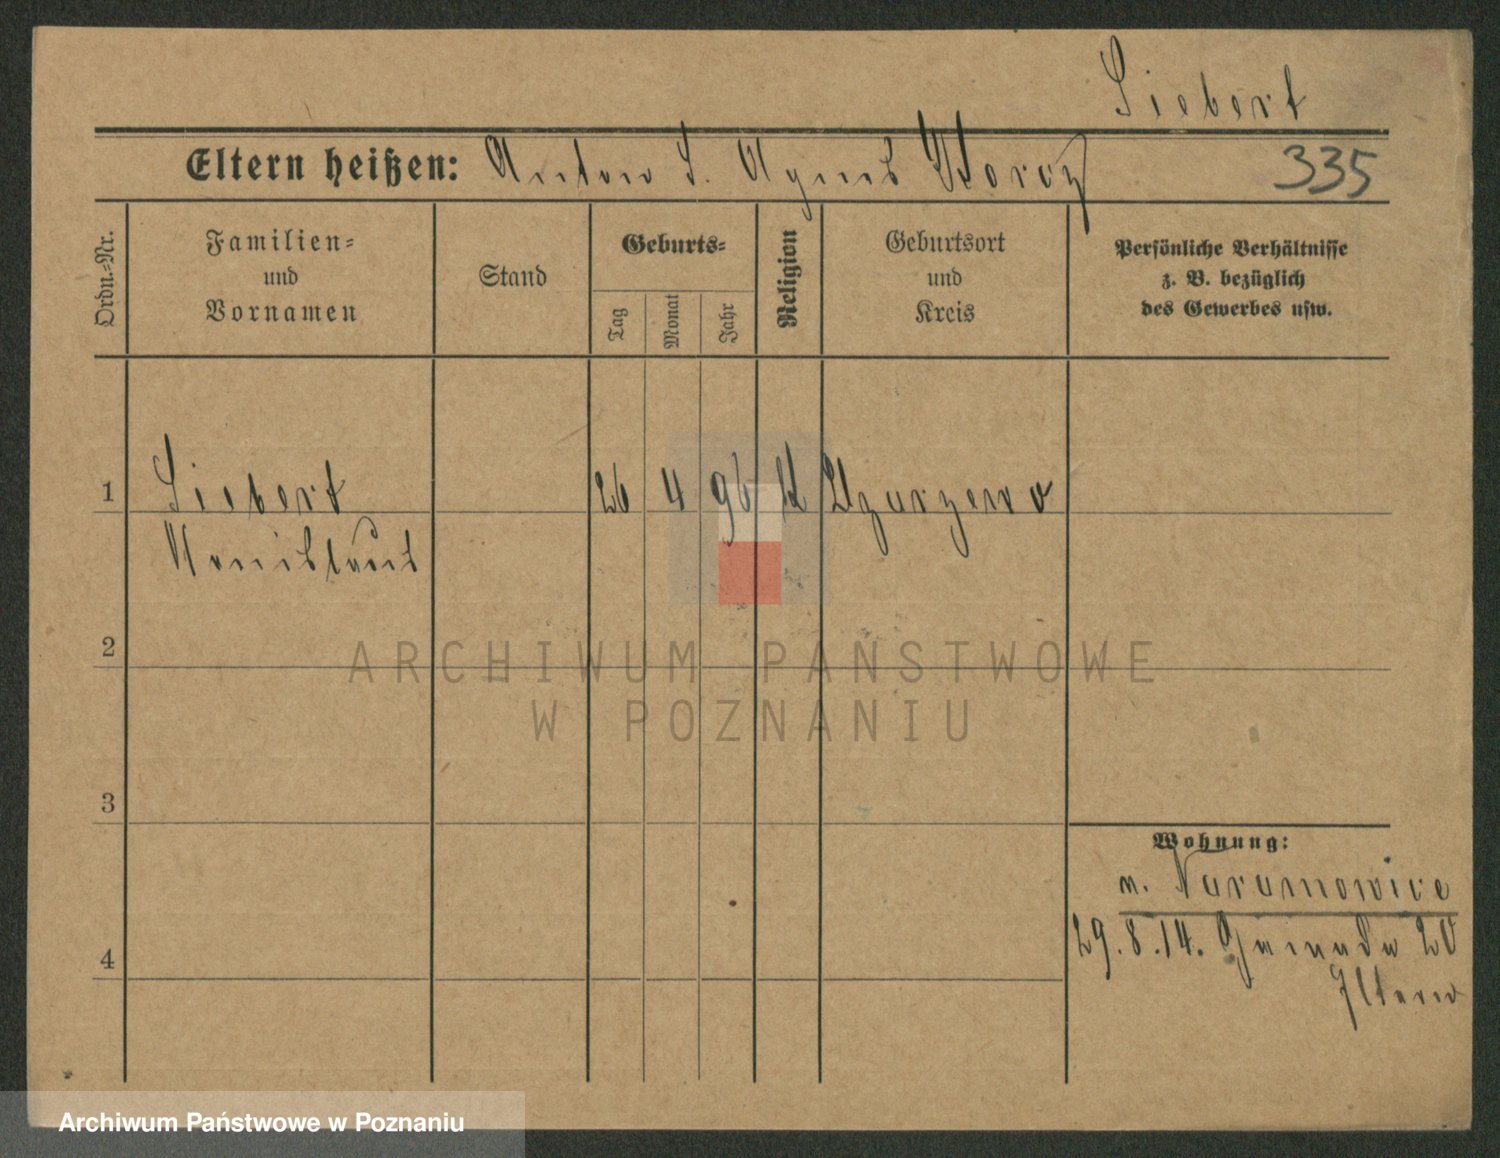 Siebert
Eltern heißen: Anton S. Agnes
335
Ordn.=Nr.
Familien=
und
Vornamen
Stand
Geburts=
Tag
Monat
Jahr
Religion
Geburtsort
und
Kreis
Persönliche Verhältnisse
z. B. bezüglich
des Gewerbes usw.
1 Siebert 26 4 96
2
3
4
Wohnung:
n. Naramowice
29.8.14. 20
Eltern
ARCHIWUM PAŃSTWOWE
W POZNANIU
Archiwum Państwowe w Poznaniu